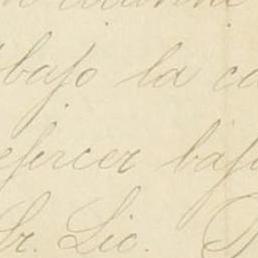 bajo la ca
ejercer bajo
Sr. Lic.